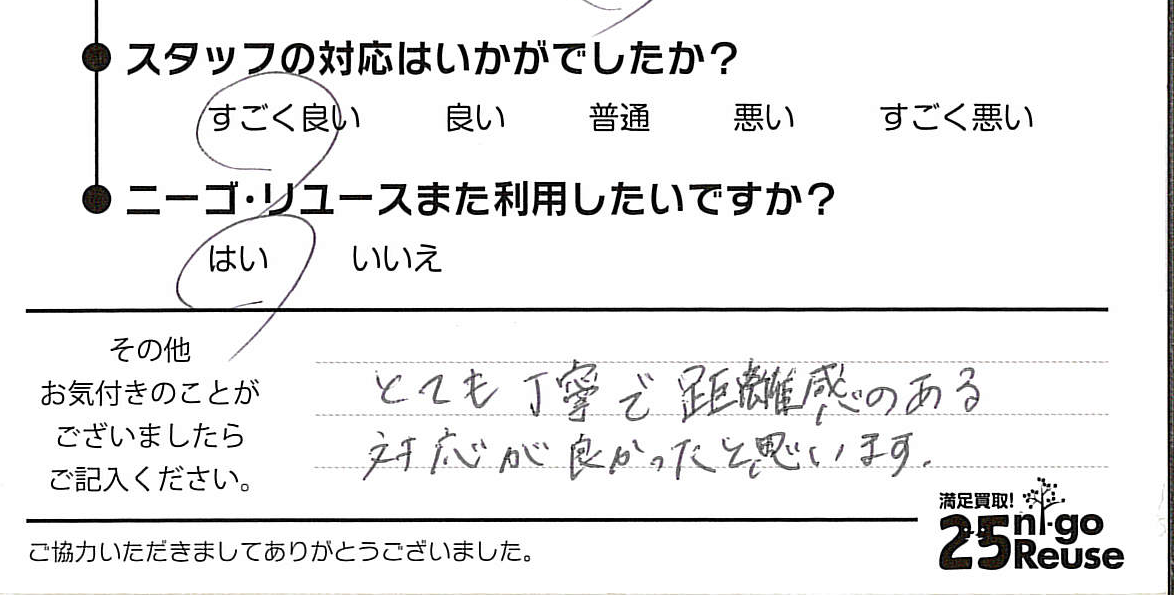 スタッフの対応はいかがでしたか？
すごく良い 良い 普通 悪い すごく悪い
ニーゴ・リユースまた利用したいですか？
はい いいえ
その他
お気付きのことが
ございましたら
ご記入ください。
とても丁寧で距離感のある
対応が良かったと思います.
ご協力いただきましてありがとうございました。
満足買取!
25 ni・go
Reuse